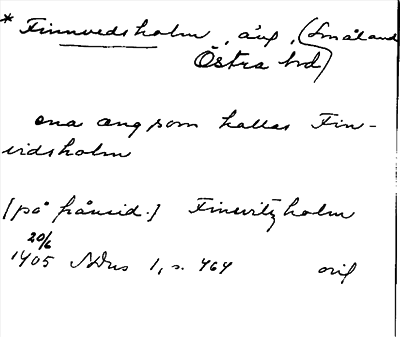 * Finnvedsholm, äng, (Småland
Östra hd)
ena æng som kallas Fin-
vidsholm
[på frånsid.] Finwitzholm
20/6
1405 SDns 1, s. 464 orig